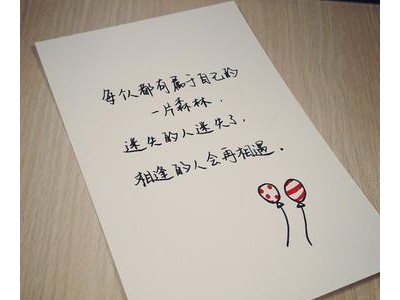 每个人都有属于自己的
一片森林.
迷失的人迷失了,
相逢的人会再相遇.